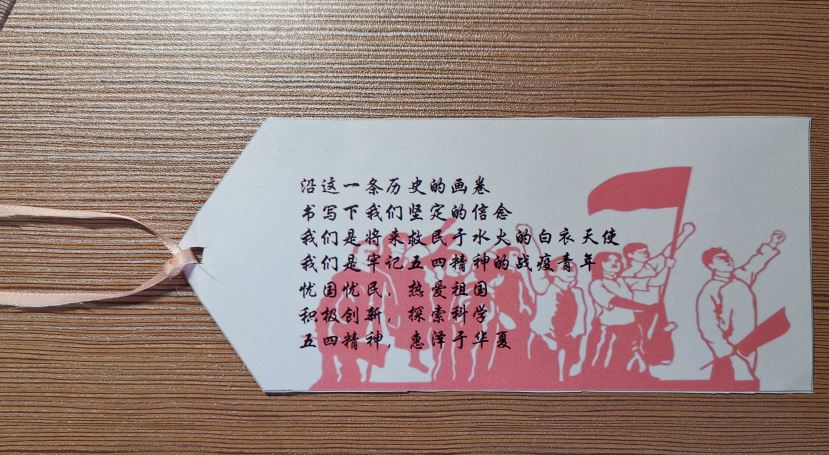 沿这一条历史的画卷
书写下我们坚定的信念
我们是将来救民于水火的白衣天使
我们是牢记五四精神的战疫青年
忧国忧民，热爱祖国
积极创新，探索科学
五四精神，惠泽于华夏